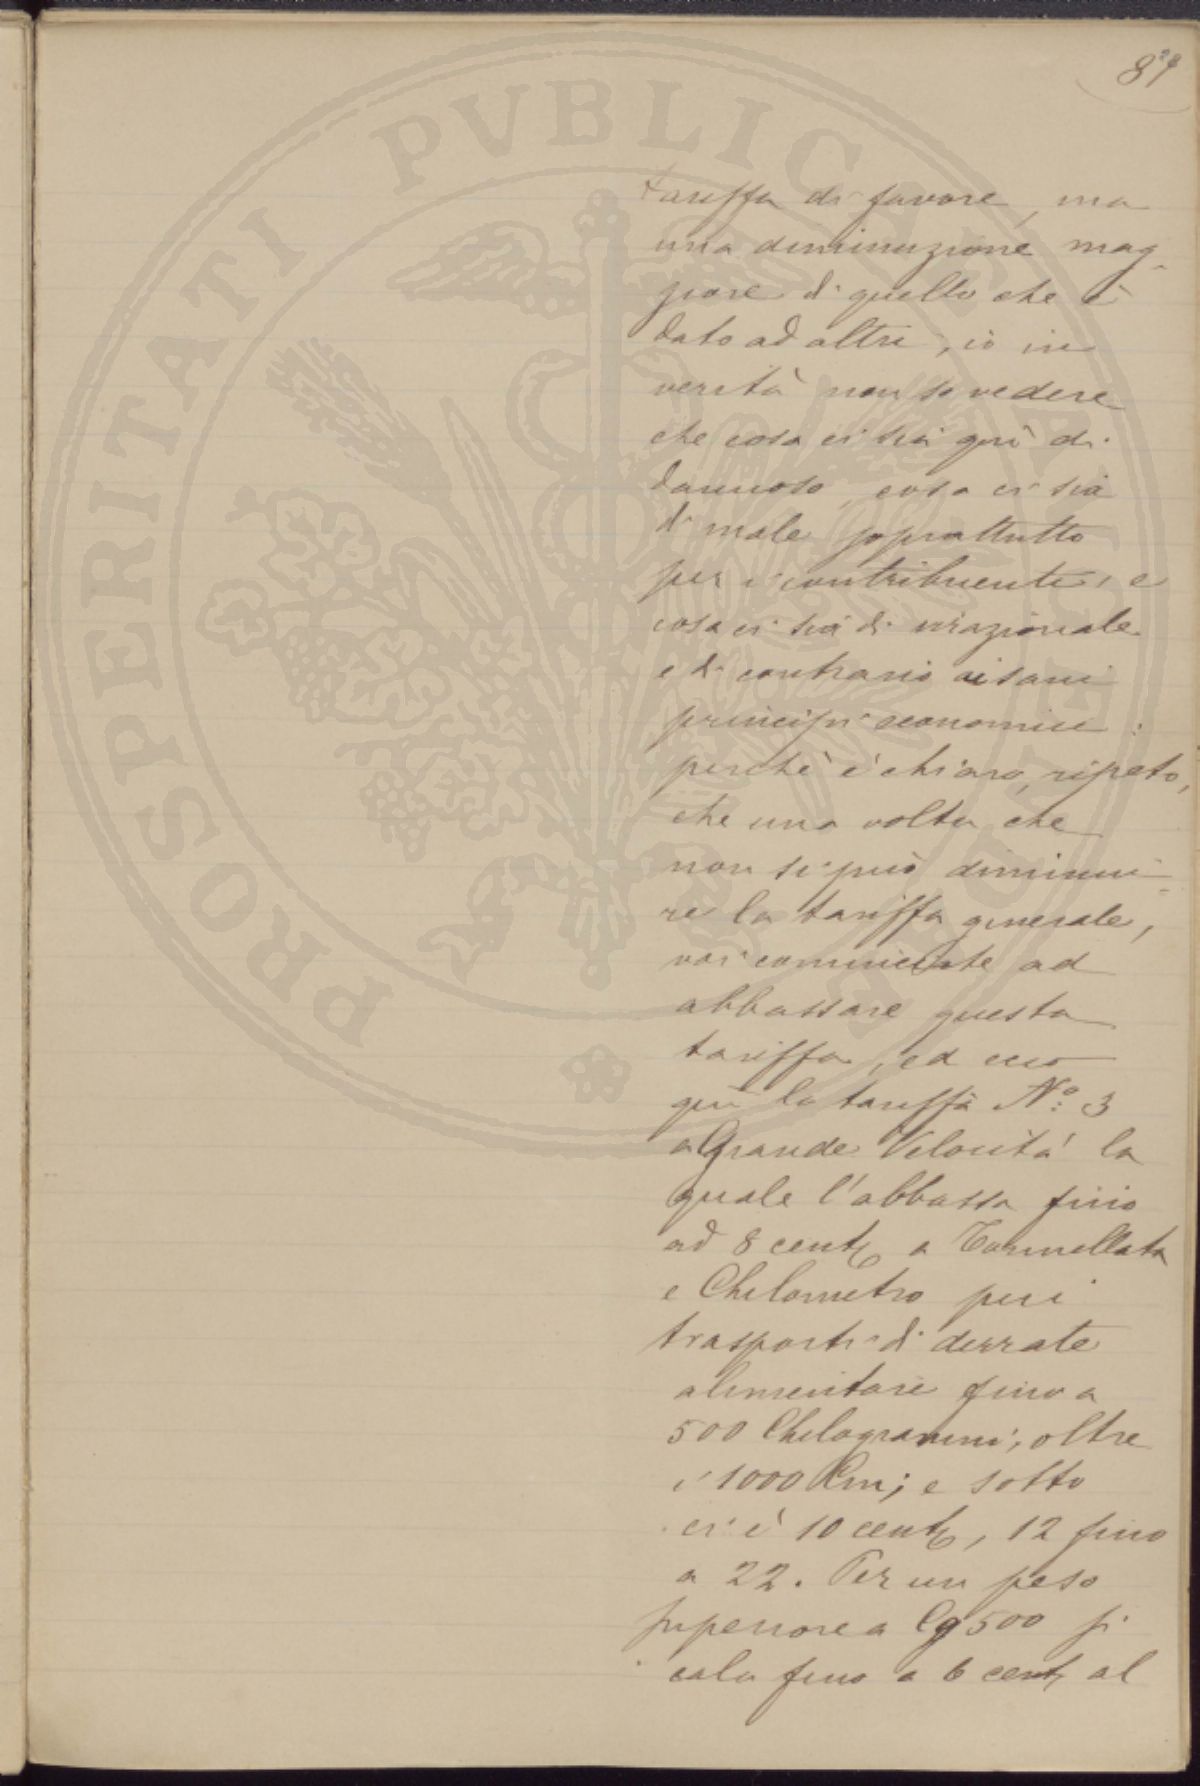 87
tariffa di favore, ma
una diminuzione mag-
giore di quello che è
dato ad altri, io in
verità non so vedere
che cosa ci sia qui di
dannoso, cosa ci sia
di male soprattutto
per i contribuenti, e
cosa ci sia di irazionale
e di contrario ai sani
principi economici:
perchè è chiaro, ripeto,
che una volta che
non si può diminui-
re la tariffa generale,
voi cominciate ad
abbassare questa
tariffa, ed ecco
qui la tariffa N.º 3
a Grande Velocità la
quale l'abbassa fino
ad 8 cent. a Tonnellata
e Chilometro per i
trasporti di derrate
alimentari fino a
500 Chilogrammi, oltre
i 1000 Cm; e sotto
ci è 10 cent., 12 fino
a 22. Per un peso
superiore a Cg 500 si
cala fino a 6 cent. al
PROSPERITATI PVBLICAE